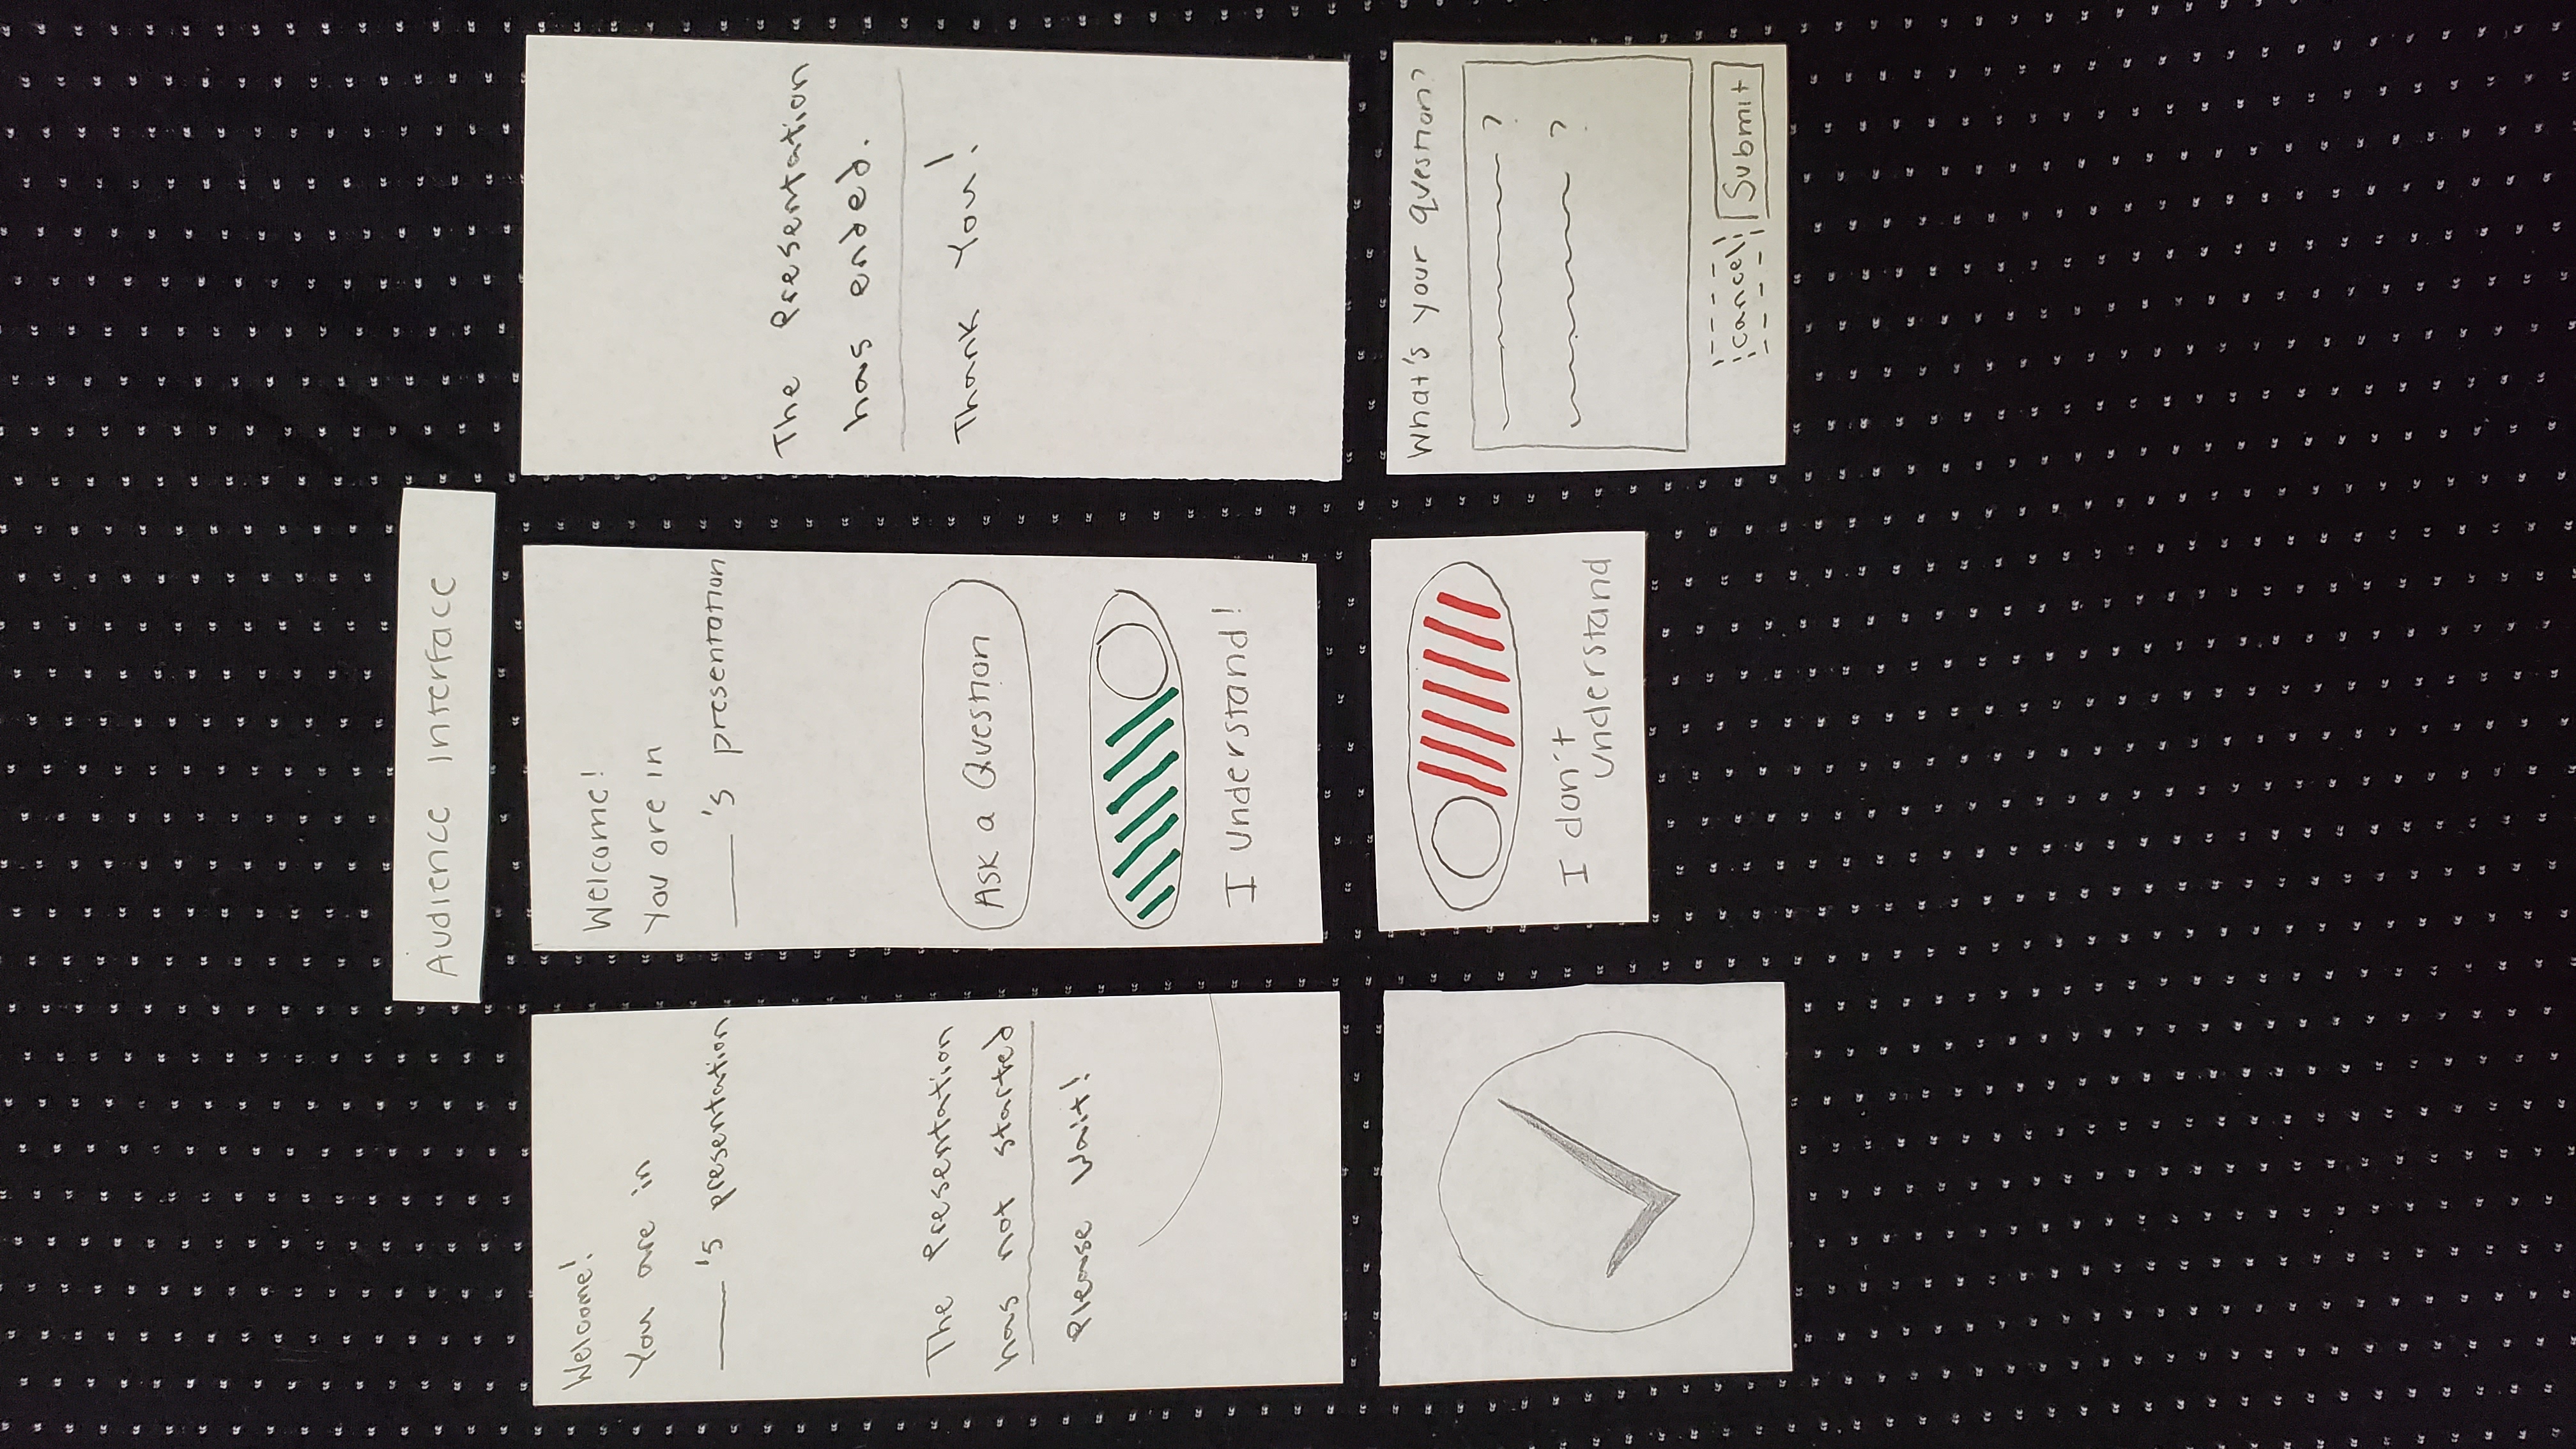 Audience Interface
Welcome!
You are in
____'s presentation
The Presentation
has not started
Please Wait!
Welcome!
You are in
____'s presentation
Ask a Question
I understand!
The Presentation
has ended.
Thank You!
I don't
understand
What's your question?
?
?
Cancel
Submit